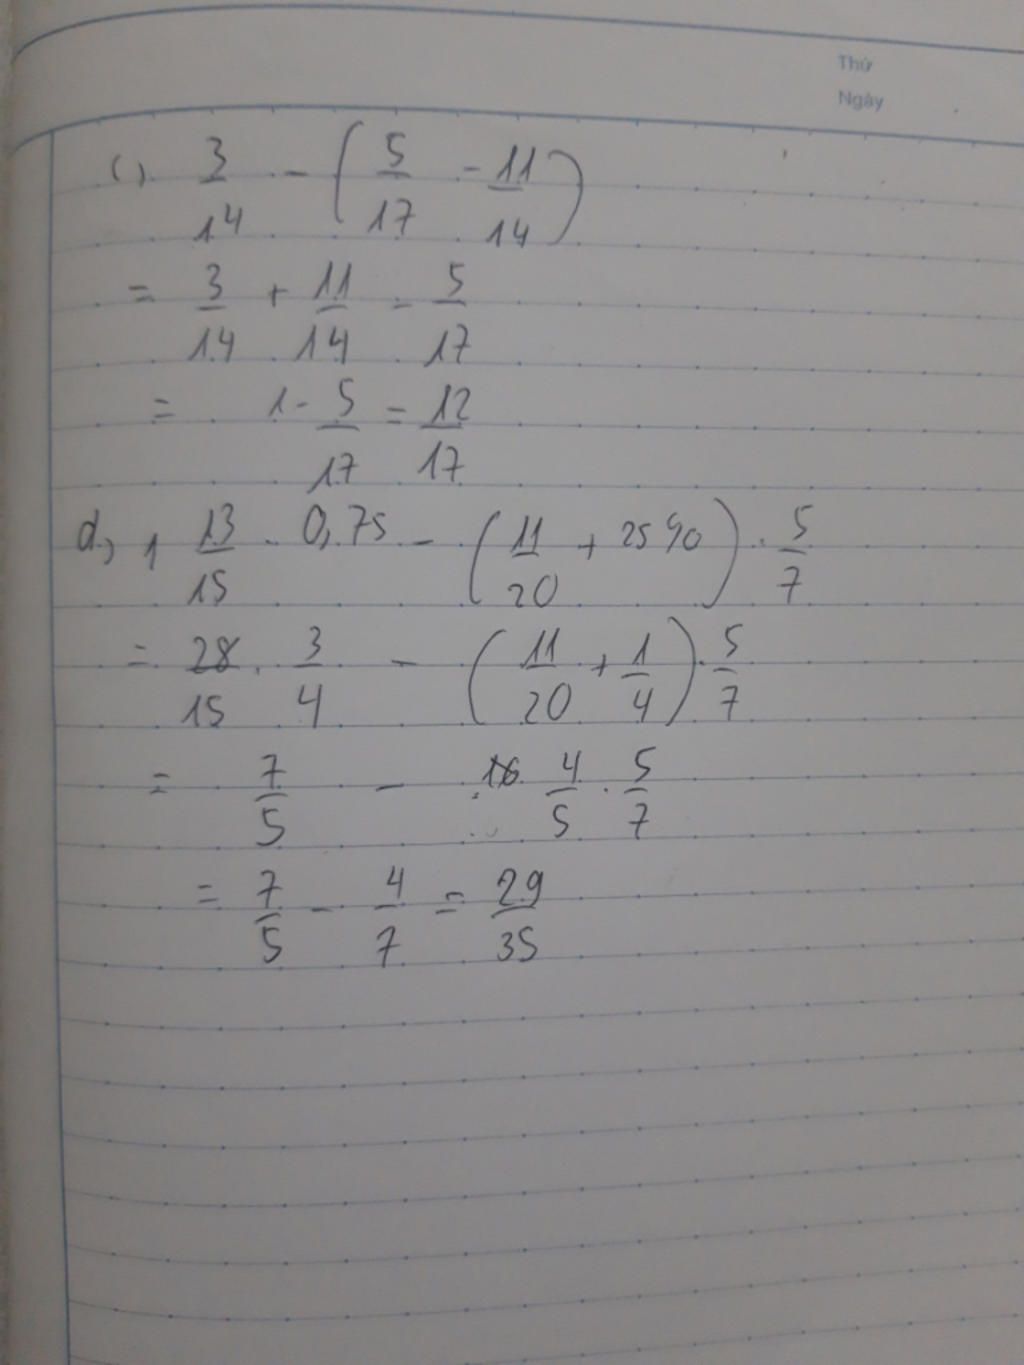 Thứ
Ngày
c) 3/14 - (5/17 - 11/14)
= 3/14 + 11/14 - 5/17
= 1 - 5/17 = 12/17
d, 1 13/15 . 0,75 - (11/20 + 25%) . 5/7
= 28/15 . 3/4 - (11/20 + 1/4) . 5/7
= 7/5 - 4/5 . 5/7
= 7/5 - 4/7 = 29/35